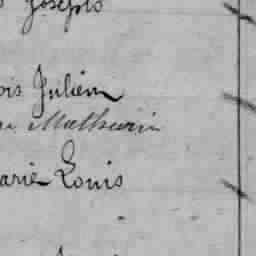 Josephs
ois Julien
Mathurin
arie Louis